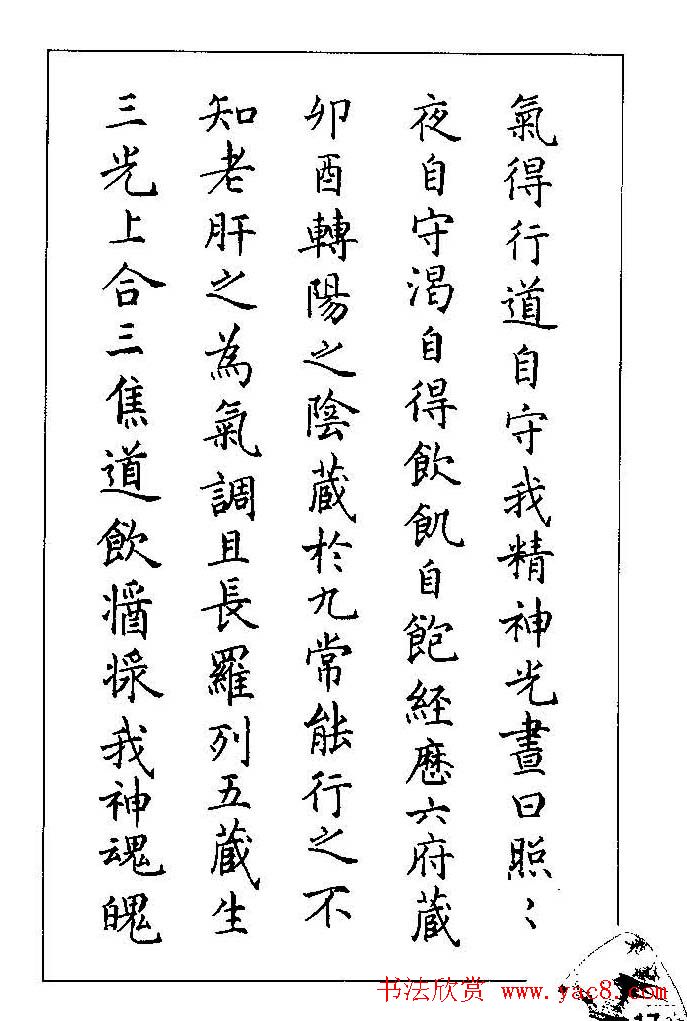 氣得行道自守我精神光晝日照〻
夜自守渴自得飲飢自飽経歷六府蔵
卯酉轉陽之陰蔵於九常能行之不
知老肝之為氣調且長羅列五蔵生
三光上合三焦道飲漿我神魂魄
书法欣赏 www.yac8.com
17